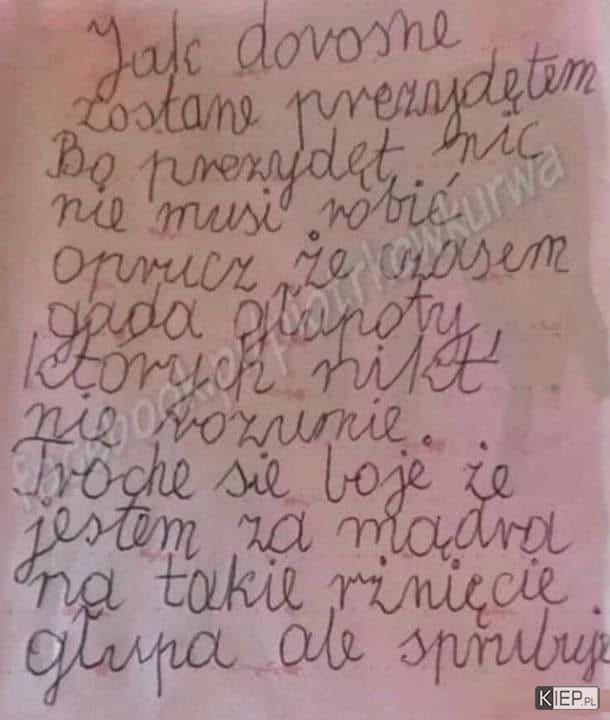 Jak dorosne
zostane prezydętem
Bo prezydęt nic
nie musi robić
oprucz że czasem
gada głupoty
których nikt
nie rozumie.
Troche sie boje że
jestem za mądra
na takie rżnięcie
głupa ale sprubuje.
facebook.pl/piotrkowkurwa
KIEP.PL